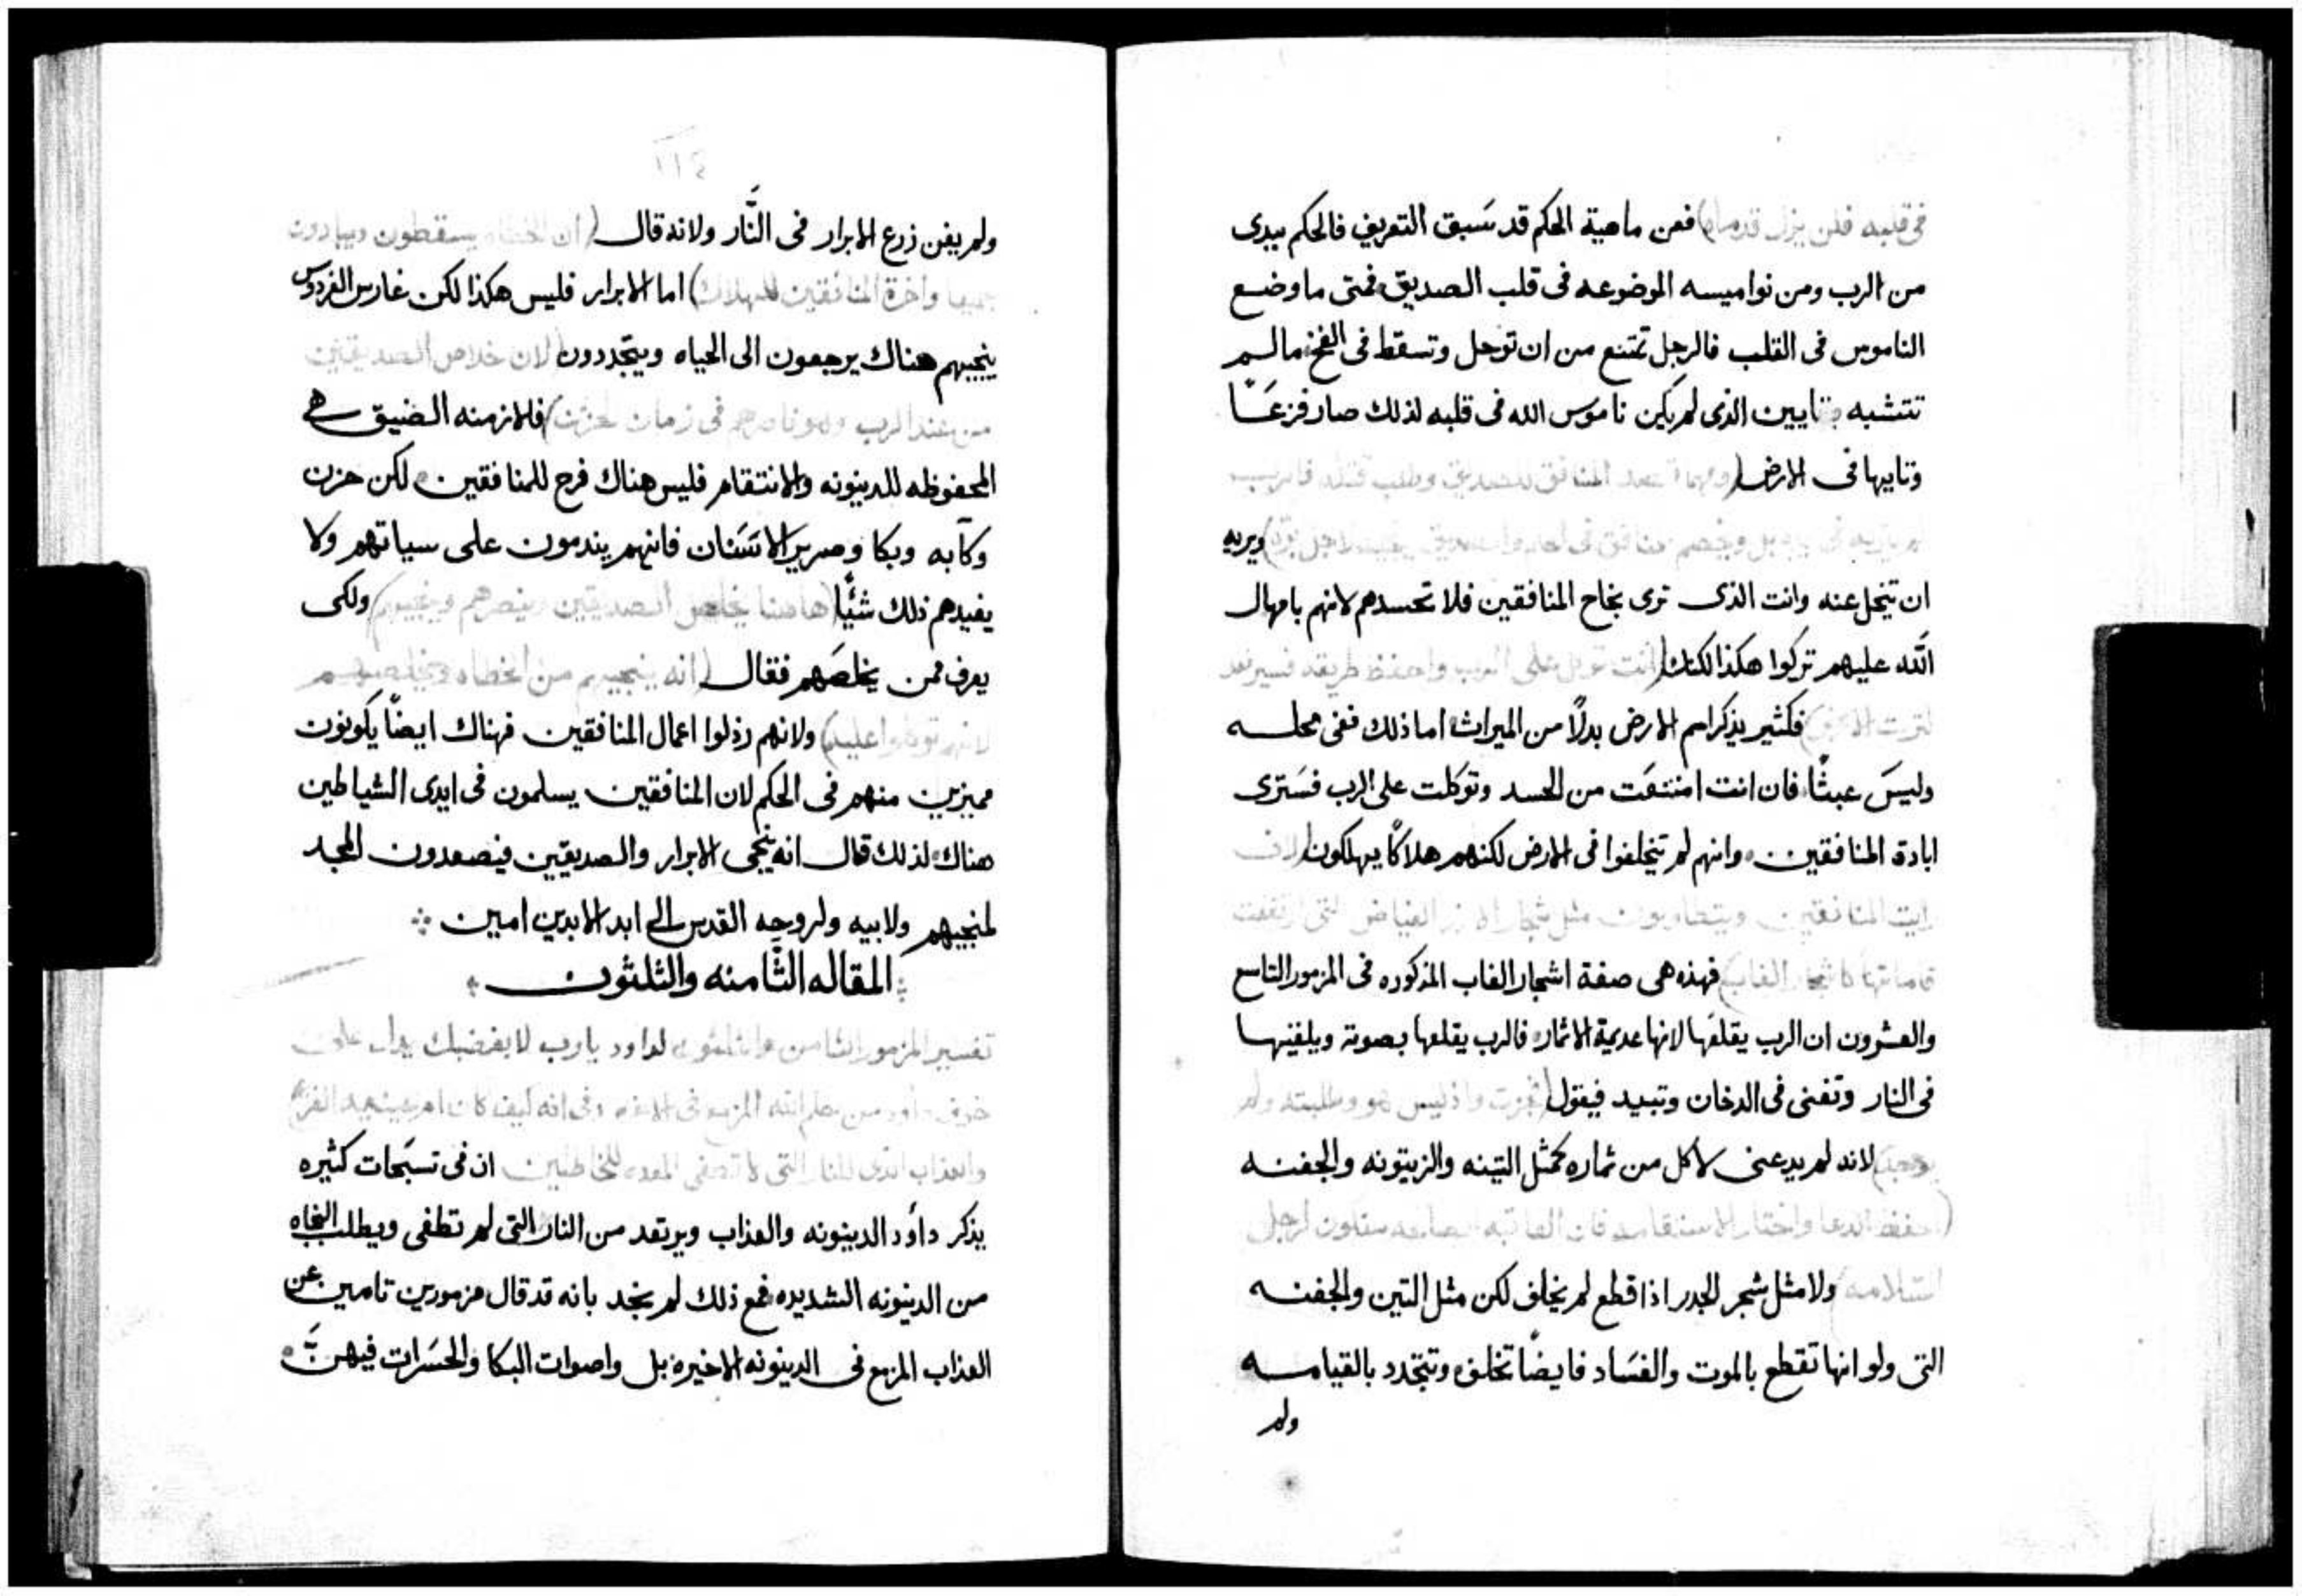 فى قلبه فلن يزل قدماه) فعن ماهية الحكم قد سَبق التعريف فالحكم يبدى
من الرب ومن نواميسه الموضوعه فى قلب الصديق فمتى ما وضع
الناموس فى القلب فالرجل تمتنع من ان توحل وتسقط فى الفخ مالم
تتشبه بقايين الذى لم يكن نامَوس الله فى قلبه لذلك صار فزعَاً
وتايها فى الارض (المنافق للصديق وطلب قتله فالرب
ويريه
ان تنجل عنه وانت الذى ترى نجاح المنافقين فلا تحسدهم لانهم بامهال
الله عليهم تركوا هكذا لكنك (انت توكل على الرب واحفظ طريقه فسيرفعك
لترث الارض) فكثير يذكرامر الارض بدلاً من الميراث اما ذلك ففى محله
وليسَ عبثاً فان انت امتنعَت من الحسد وتوكلت على الرب فسَترى
ابادة المنافقين وانهم لم تتخلفوا فى الارض لكنهم هلاكاً يهلكون
رايت المنافقين ويتطاولون مثل شجار ارز الغياض التى ارتفعت
قاماتها كاشجار الغاب) فهذه هى صفة اشجار الغاب المذكوره فى المزمور التاسع
والعشرون ان الرب يقلعَها لانها عديمة الاثمار فالرب يقلعها بصوته ويلقيها
فى النار وتفنى فى الدخان وتبيد فيقول (فجزت واذ ليس هو وطلبته ولم
يوجد) لانه لم يدعنى لاكل من ثماره كمثل التينه والزيتونه والجفنه
(احفظ الدعا واختار الاستقامه فان العاقبه لرجل
السلامه) ولا مثل شجر الجدر اذا قطع لم يخلف لكن مثل التين والجفنه
التى ولو انها تقطع بالموت والفسَاد فايضاً تخلف وتتجدد بالقيامه
ولم
١١٤
ولم يفن زرع الابرار فى النَّار ولانه قال (ان الخطاه يسقطون ويبادون
جميعا واخرة المنافقين للهلاك) اما الابرار فليس هكذا لكن غارس الفردوس
ينجيهم هناك يرجعون الى الحياه ويتجددون (لان خلاص الصديقين
من عند الرب وهو ناصرهم فى زمان الحزن) فلازمنه الضيق هى
المحفوظه للدينونه والانتقام فليس هناك فرح للمنافقين لكن حزن
وكآبه وبكا وصرير الاسَنان فانهم يندمون على سياتهم ولا
يفيدهم ذلك شئًيا (هاهنا يخلص الصديقين وينصرهم وينجيهم) ولكى
يعرف ممن يخلصَهم فقال (انه ينجيهم من الخطاه ويخلصهم
لانهم توكلوا عليه) ولانهم رذلوا اعمال المنافقين فهناك ايضاً يكونون
مميزين منهم فى الحكم لان المنافقين يسلمون فى ايدى الشياطين
هناك لذلك قال انه ينجى الابرار والصديقين فيصعدون المجد
لمنجيهم ولابيه ولروحه القدس الى ابد الابدين امين
المقاله الثَّامنه والثلثون
تفسير المزمور الثامن والثلثون لداود يارب لا بغضبك يدل على
خوف داود من حكم الله المزمع وفى انه كيف كان امر
والعذاب الذى للنار التى لا تطفى المعده للخاطيين ان فى تسبَحات كثيره
يذكر دأود الدينونه والعذاب ويرتعد من النار التى لم تطفى ويطلب النجاه
من الدينونه الشديده فمع ذلك لم نجد بانه قد قال مزمورين تامين عن
العذاب المزمع فى الدينونه الاخيره بل واصوات البكا والحسَرات فيهن